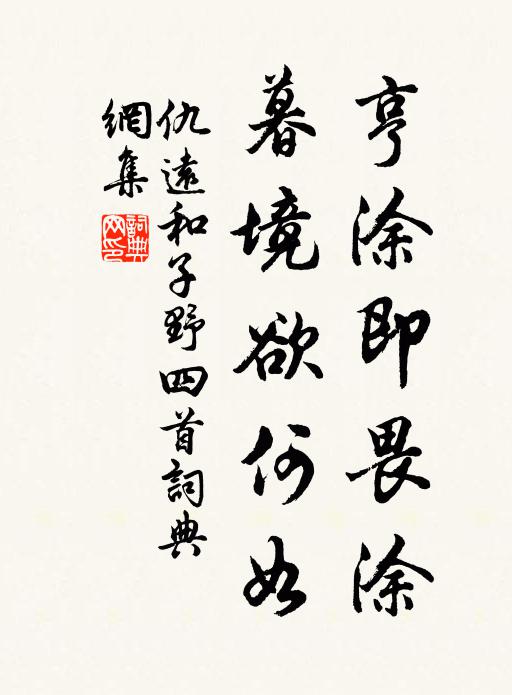 亨涂即畏涂
暮境欲何如
仇遠和子野四首詞典
網集
詞典網印